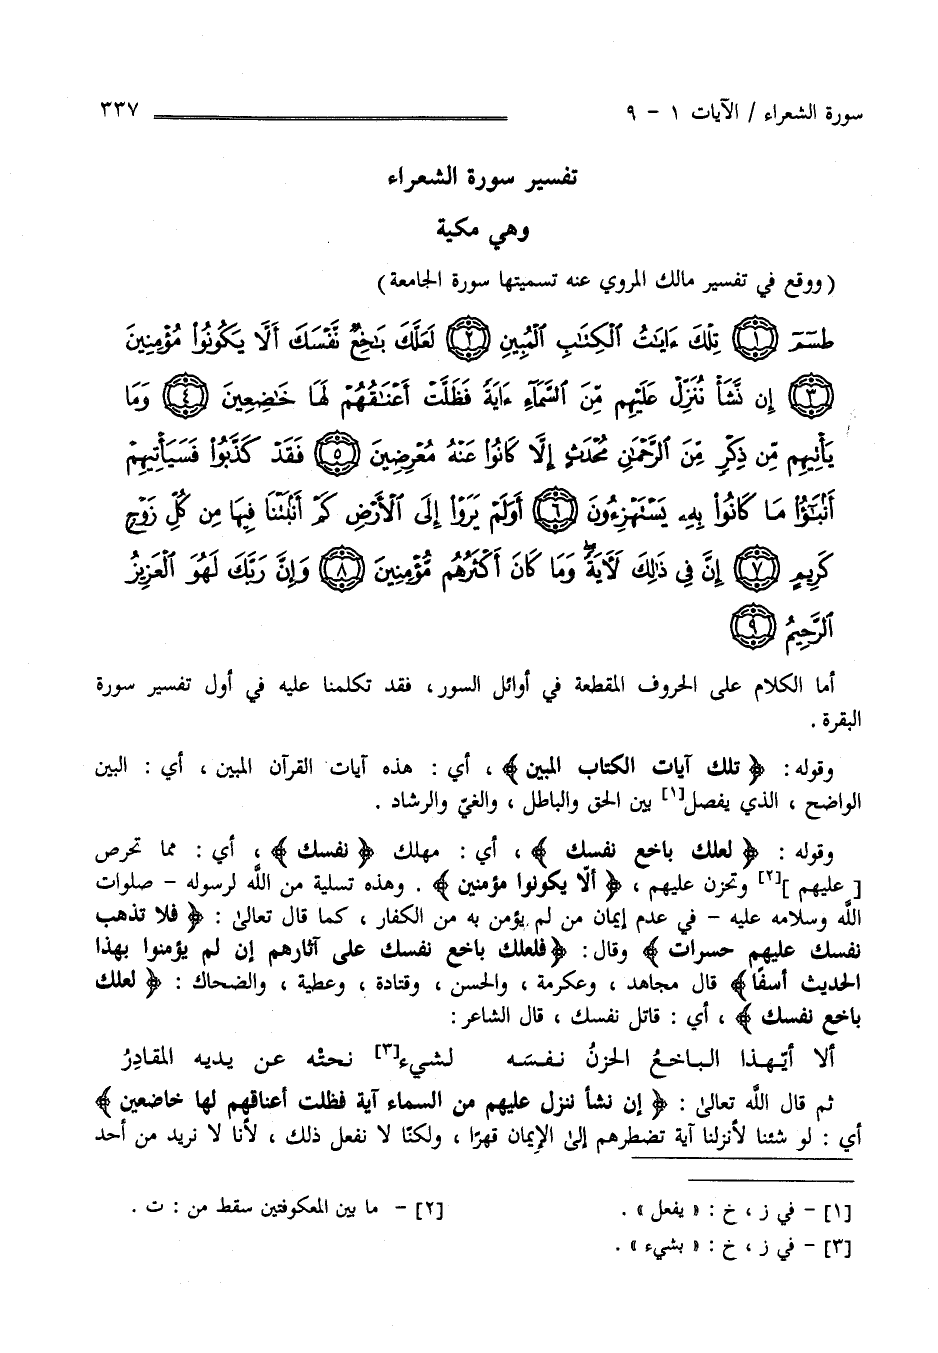 سورة الشعراء / الآيات ١ - ٩ ٣٣٧
تفسير سورة الشعراء
وهي مكية
( ووقع في تفسير مالك المروي عنه تسميتها سورة الجامعة )
طسٓمٓ ١ تِلْكَ ءَايَٰتُ ٱلْكِتَٰبِ ٱلْمُبِينِ ٢ لَعَلَّكَ بَٰخِعٌ نَّفْسَكَ أَلَّا يَكُونُوا۟ مُؤْمِنِينَ
٣ إِن نَّشَأْ نُنَزِّلْ عَلَيْهِم مِّنَ ٱلسَّمَآءِ ءَايَةً فَظَلَّتْ أَعْنَٰقُهُمْ لَهَا خَٰضِعِينَ ٤ وَمَا
يَأْتِيهِم مِّن ذِكْرٍ مِّنَ ٱلرَّحْمَٰنِ مُحْدَثٍ إِلَّا كَانُوا۟ عَنْهُ مُعْرِضِينَ ٥ فَقَدْ كَذَّبُوا۟ فَسَيَأْتِيهِمْ
أَنۢبَٰٓؤُا۟ مَا كَانُوا۟ بِهِۦ يَسْتَهْزِءُونَ ٦ أَوَلَمْ يَرَوْا۟ إِلَى ٱلْأَرْضِ كَمْ أَنۢبَتْنَا فِيهَا مِن كُلِّ زَوْجٍ
كَرِيمٍ ٧ إِنَّ فِى ذَٰلِكَ لَءَايَةً ۖ وَمَا كَانَ أَكْثَرُهُم مُّؤْمِنِينَ ٨ وَإِنَّ رَبَّكَ لَهُوَ ٱلْعَزِيزُ
ٱلرَّحِيمُ ٩
أما الكلام على الحروف المقطعة في أوائل السور ، فقد تكلمنا عليه في أول تفسير سورة
البقرة .
وقوله : ﴿ تلك آيات الكتاب المبين ﴾ ، أي : هذه آيات القرآن المبين ، أي : البين
الواضح ، الذي يفصل[١] بين الحق والباطل ، والغيّ والرشاد .
وقوله : ﴿ لعلك باخع نفسك ﴾ ، أي : مهلك ﴿ نفسك ﴾ ، أي : مما تحرص
[ عليهم ][٢] وتحزن عليهم ، ﴿ ألّا يكونوا مؤمنين ﴾ . وهذه تسلية من اللَّه لرسوله - صلوات
اللَّه وسلامه عليه - في عدم إيمان من لم يؤمن به من الكفار ، كما قال تعالىٰ : ﴿ فلا تذهب
نفسك عليهم حسرات ﴾ وقال : ﴿ فلعلك باخع نفسك على آثارهم إن لم يؤمنوا بهذا
الحديث أسفًا ﴾ قال مجاهد ، وعكرمة ، والحسن ، وقتادة ، وعطية ، والضحاك : ﴿ لعلك
باخع نفسك ﴾ ، أي : قاتل نفسك ، قال الشاعر :
ألا أيّهذا الباخعُ الحزنُ نفسَه لشيء[٣] نحتْه عن يديه المقادِرُ
ثم قال اللَّه تعالىٰ : ﴿ إن نشأ ننزل عليهم من السماء آية فظلت أعناقهم لها خاضعين ﴾
أي : لو شئنا لأنزلنا آية تضطرهم إلىٰ الإيمان قهرًا ، ولكنّا لا نفعل ذلك ، لأنا لا نريد من أحد
[١] - في ز ، خ : « يفعل » . [٢] - ما بين المعكوفتين سقط من : ت .
[٣] - في ز ، خ : « بشيء » .